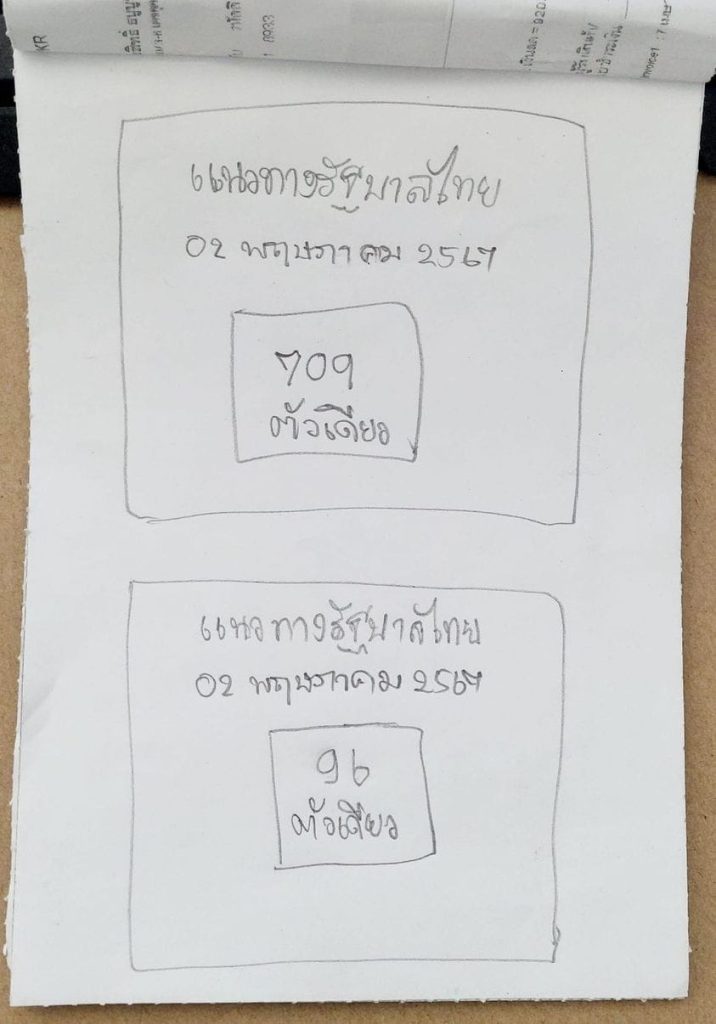 แนวทางรัฐบาลไทย
02 พฤษภาคม 2567
709
ตัวเดียว
แนวทางรัฐบาลไทย
02 พฤษภาคม 2567
96
ตัวเดียว